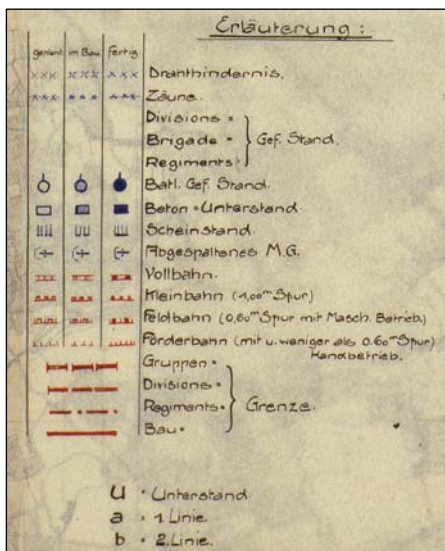 Erläuterung:
geplant. im Bau. fertig.
Drahthindernis.
Zäune.
Divisions =
Brigade = Gef. Stand.
Regiments=
Batl. Gef. Stand.
Beton = Unterstand
Scheinstand.
Abgespaltenes M.G.
Vollbahn.
Kleinbahn (1,00m Spur)
Feldbahn (0,60m Spur mit Masch. Betrieb.)
Förderbahn (mit u. weniger als 0.60m Spur)
Handbetrieb.
Gruppen =
Divisions =
Regiments = Grenze.
Bau =
U = Unterstand.
a = 1. Linie.
b = 2. Linie.